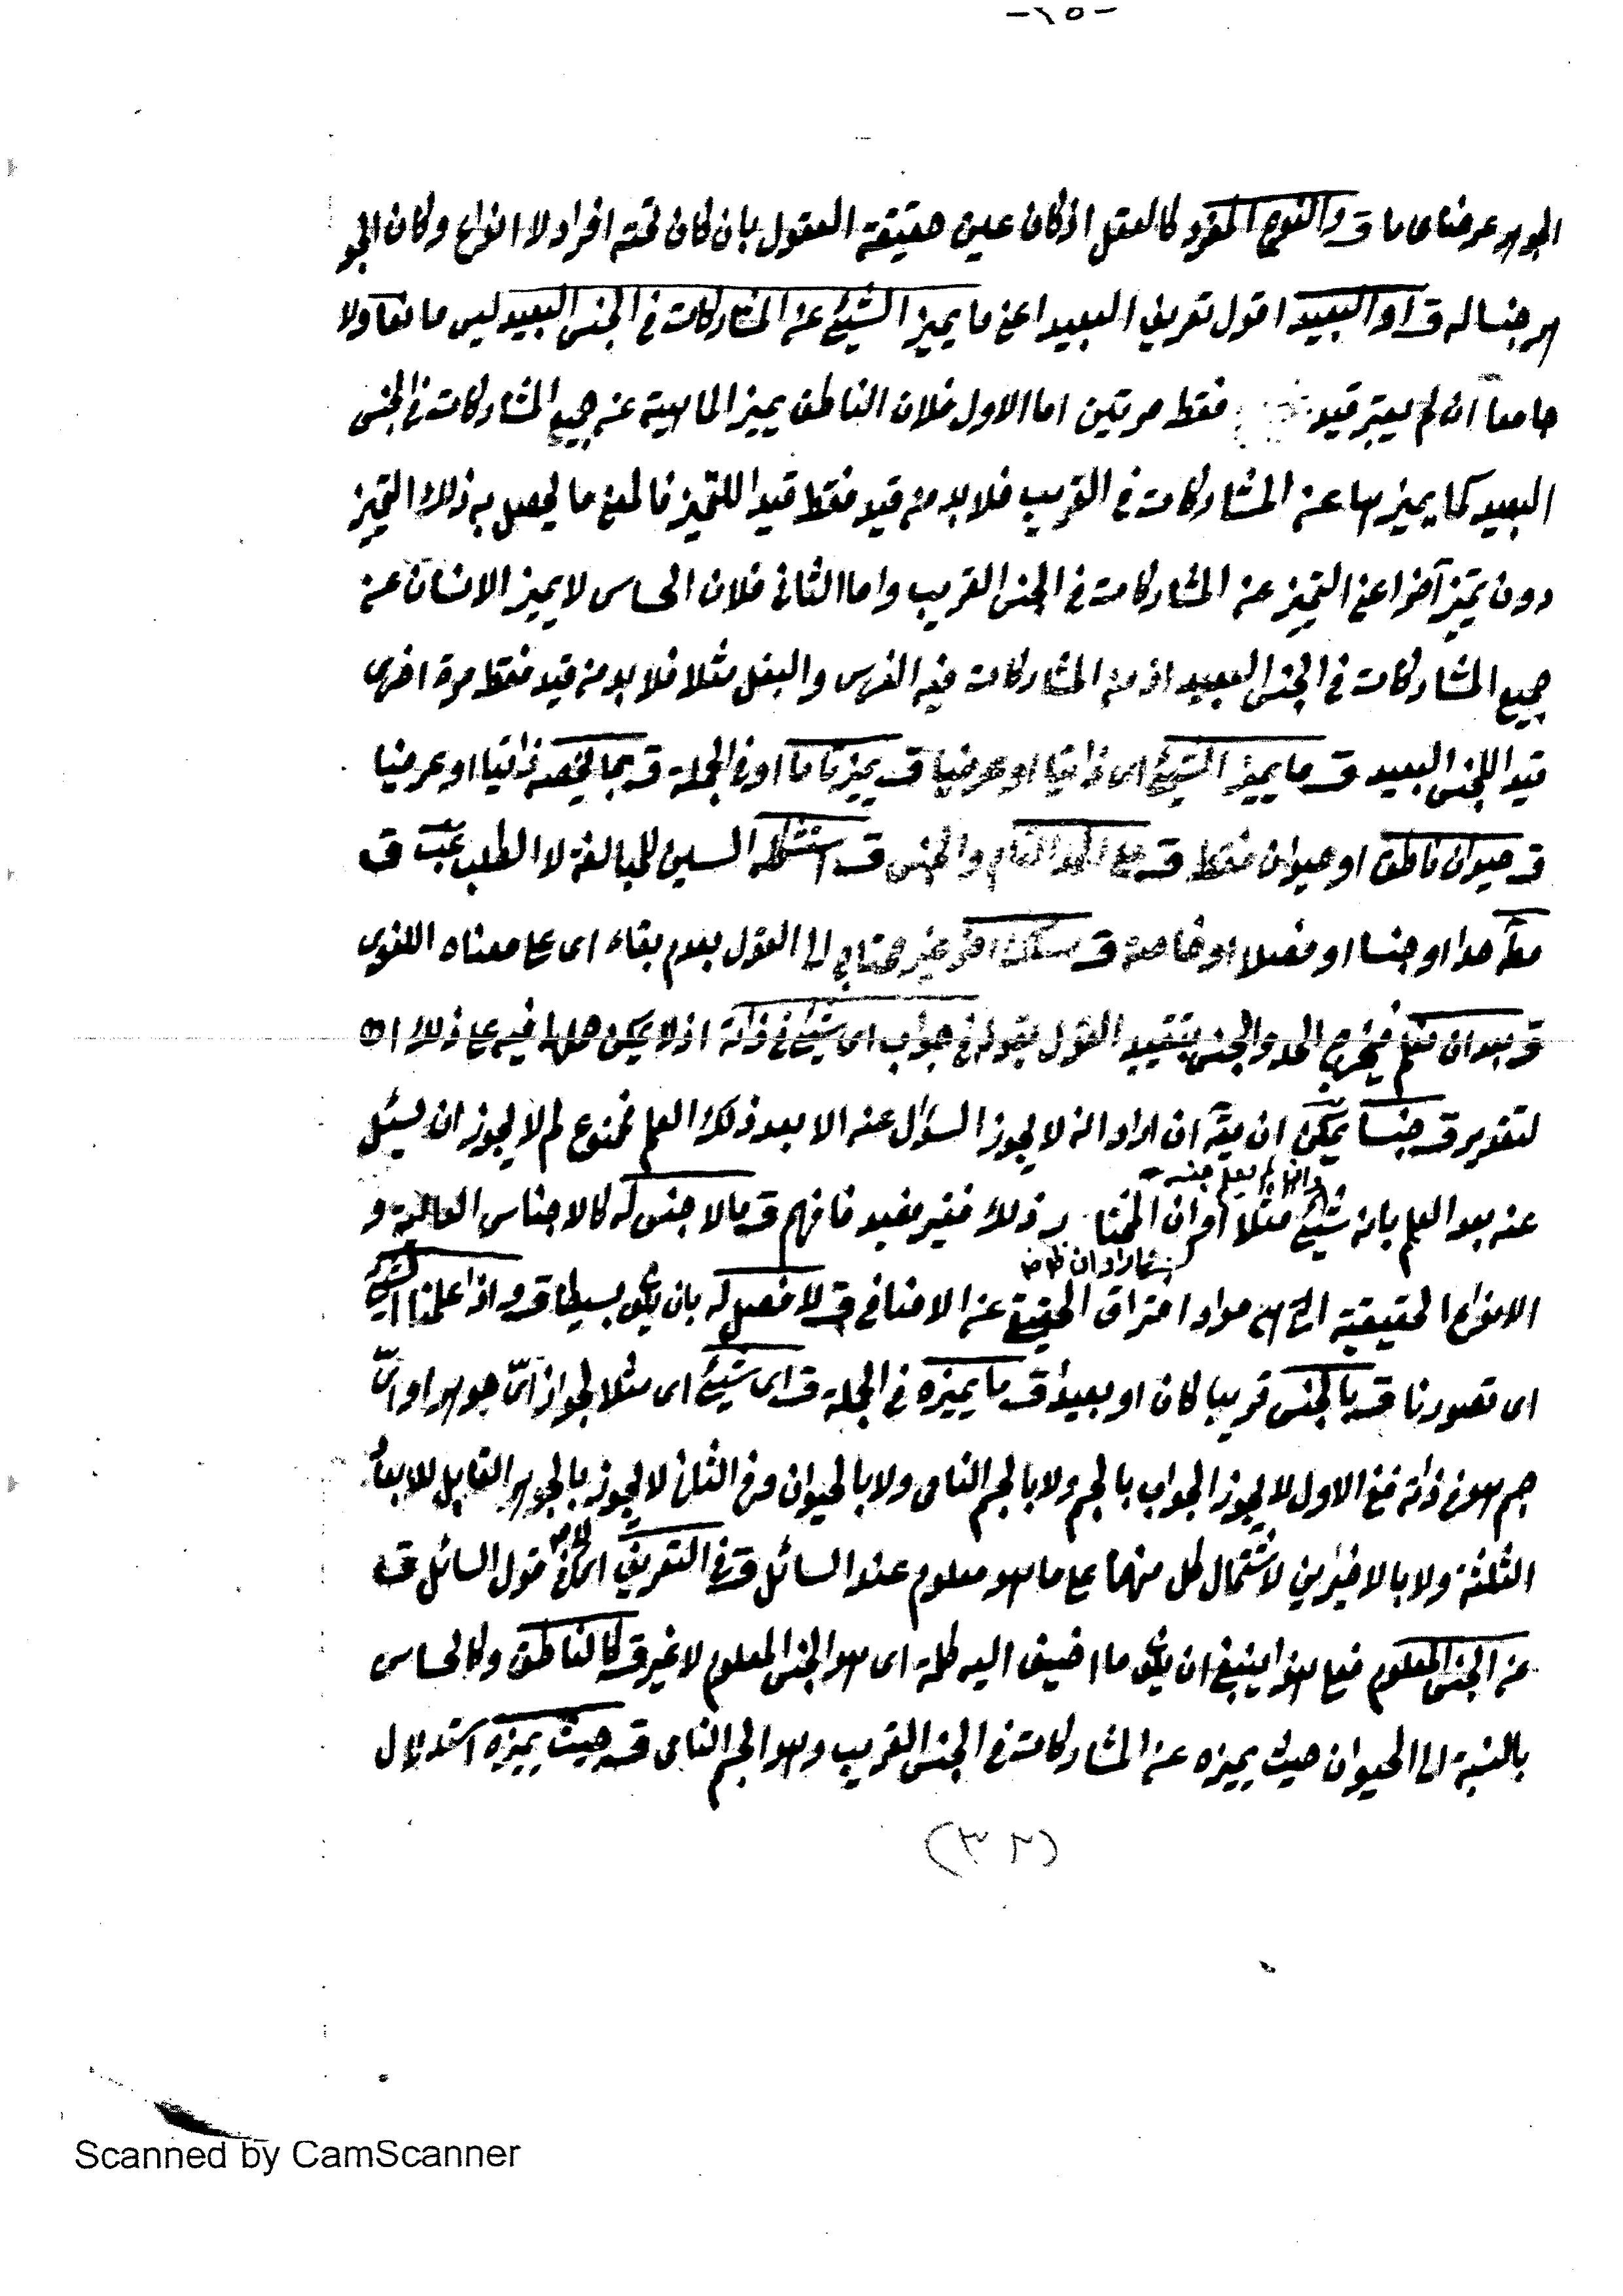 -٢٥-
الجوهر عرضا عاما قـ والنوع المفرد كالعقل اذ كان عين حقيقة العقول بان كان تحته افراد لا انواع وكان الجو
هر جنسا له قـ او البعيد اقول تعريف البعيد اعنى ما يميز الشيئ عن المشاركات فى الجنس البعيد ليس مانعا ولا
جامعا ان لم يعتبر قيد فقط مرتين اما الاول فلان الناطق يميز الماهية عن جميع المشاركات فى الجنس
البعيد كما يميزها عن المشاركات فى القريب فلا بد من قيد فقط قيدا للتميز فالمعنى ما يحصل به ذلك التميز
دون تميز آخر اعنى التميز عن المشاركات فى الجنس القريب واما الثانى فلان الحساس لا يميز الانسان عن
جميع المشاركات فى الجنس البعيد اذ من المشاركات فيه الفرس والبغل مثلا فلا بد من قيد فقط مرة اخرى
قيدا للجنس البعيد قـ ما يميز الشيئ اى ذاتيا او عرضيا قـ تميزا تاما او فى الجملة قـ بما يخصه ذاتيا او عرضيا
قـ حيوان ناطق او حيوان فقط قـ الحد التام والجنس قـ استشكله السين للمبالغة لا الطلب قـ
حدا او جنسا او فصلا او خاصة قـ مسلك آخر غير محتاج الى القول بعدم بقاء اى على معناه اللغوى
قـ بعد ان فيخرج الحد والجنس بتقييد القول بقوله فى جواب اى شيئ فى ذاته اذ لا يمكن حملها فيه على ذلك
لتقدير قـ جنسا يمكن ان يقـ ان اراد انه لا يجوز السؤال عنه الا بعد ذلك العلم فممنوع لم لا يجوز ان يسئل
وان لم يعلم جنسه
عنه بعد العلم بانه شيئ مثلا او ان المختار ذلك فغير مفيد فافهم قـ مالا جنس له كالاجناس العالية و
الانواع الحقيقية التى هى مواد افتراق الحقيقى عن الاضافى قـ لا فصل له بان يكون بسيطا قـ واذا علمنا الشيئ
اى تصورنا قـ بالجنس قريبا كان او بعيدا قـ ما يميزه فى الجملة قـ اى شيئ اى مثلا لجواز اىّ جوهر او اىّ
جسم هو فى ذاته ففى الاول لا يجوز الجواب بالجسم ولا بالجسم النامى ولا بالحيوان وفى الثانى لا يجوز بالجوهر القابل للابعاد
الثلثة ولا بالاخيرين لاشتمال كل منهما على ما هو معلوم عند السائل قـ فى التعريف اى قول السائل قـ
عن الجنس المعلوم فعلى هذا ينبغى ان يكون ما اضيف اليه كلمة اى هو الجنس المعلوم لا غير قـ كالناطق وكالحساس
بالنسبة الى الحيوان حيث يميزه عن المشاركات فى الجنس القريب وهو الجسم النامى قـ حيث يميزه استدلال
(٣٢)
Scanned by CamScanner